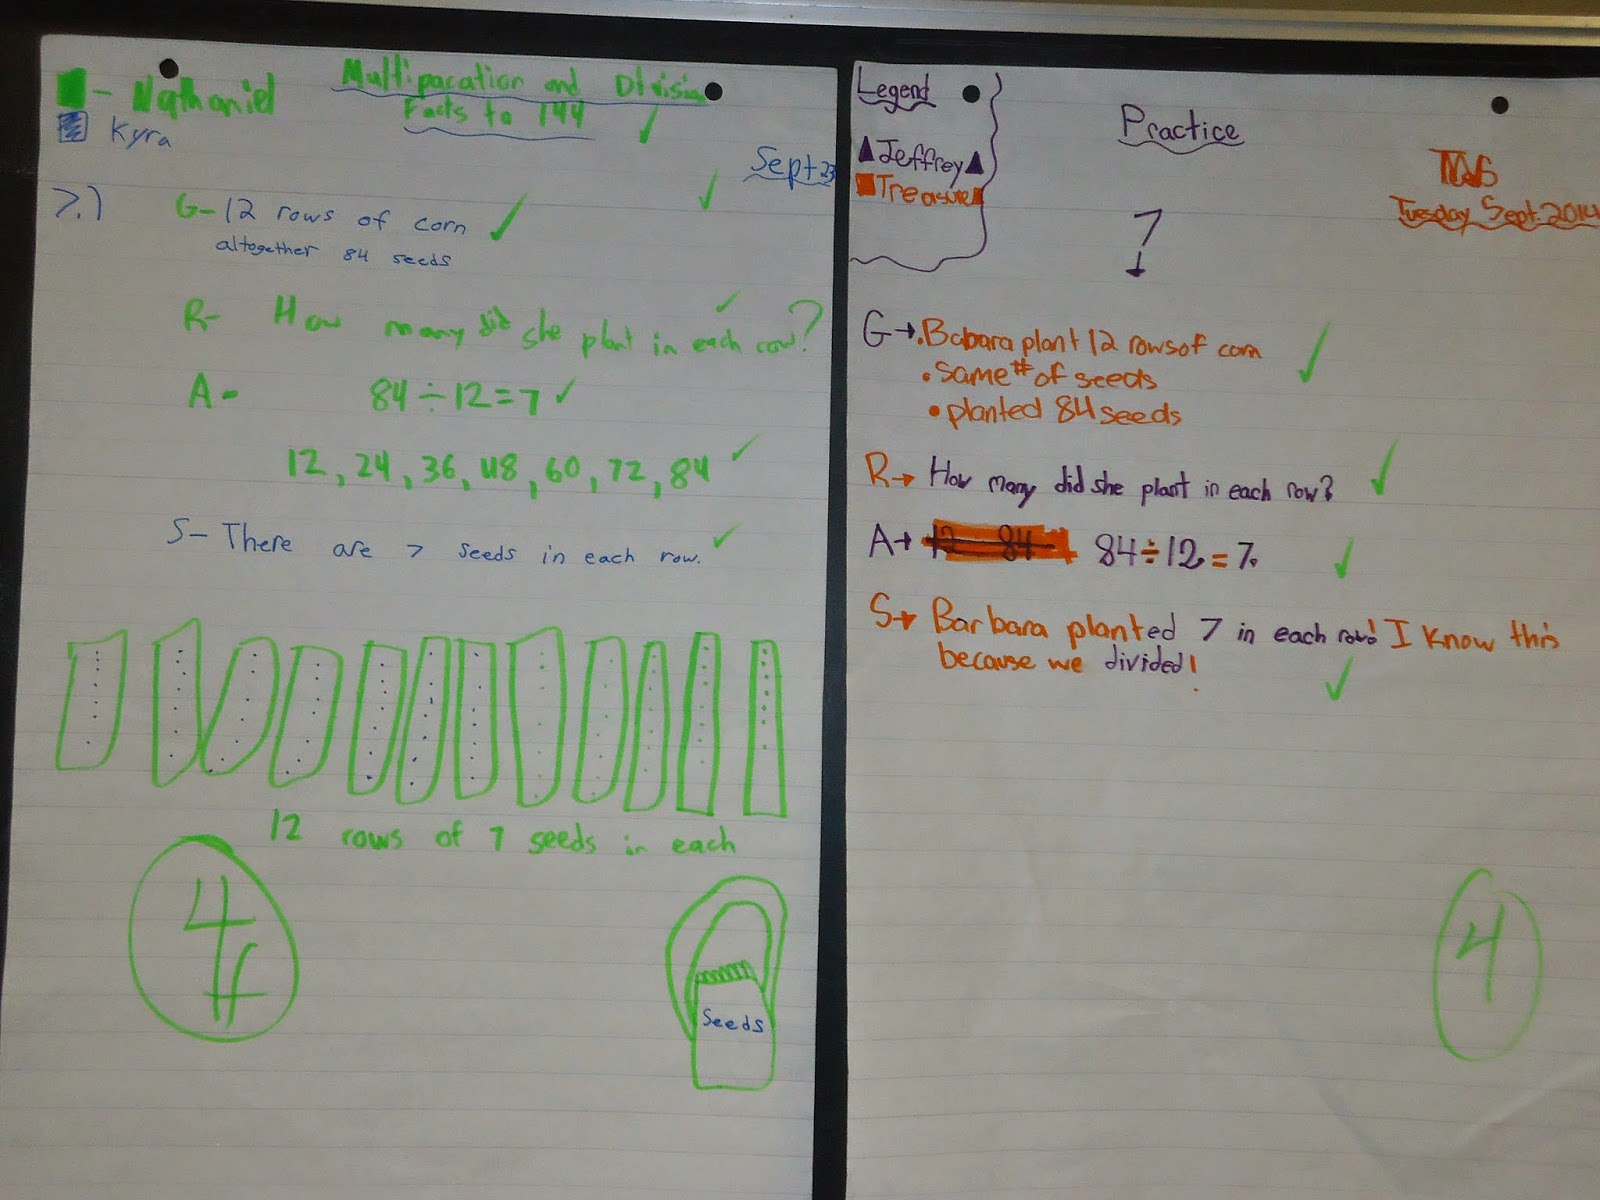 - Nathaniel
Kyra
Multipacation and Division
Facts to 144
Sept 23
7.)
G- 12 rows of corn
altogether 84 seeds
R- How many did she plant in each row?
A- 84 ÷ 12 = 7
12, 24, 36, 48, 60, 72, 84
S- There are 7 seeds in each row.
12 rows of 7 seeds in each
4
Seeds
Legend
Jeffrey
Treasure
Practice
7
Tuesday Sept. 2014
G→ • Babara plant 12 rows of corn
• same # of seeds
• planted 84 seeds
R→ How many did she plant in each row?
A→ 12 84 84÷12=7.
S→ Barbara planted 7 in each row! I know this
because we divided!
4